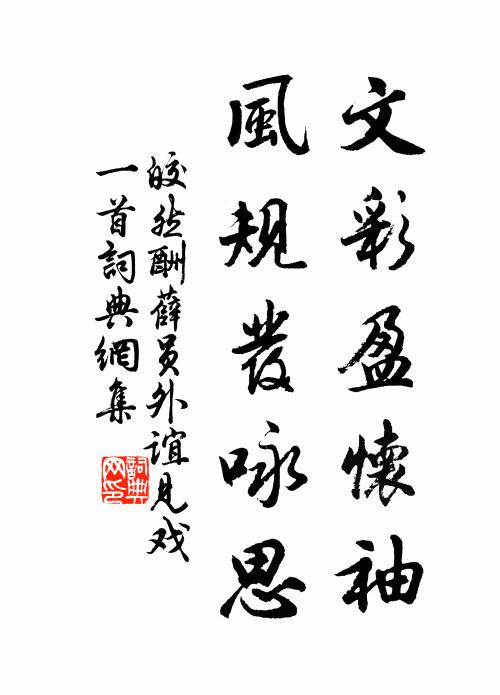 文彩盈懷袖
風規發咏思
皎然酬薛員外誼見戏
一首詞典網集
詞典網印